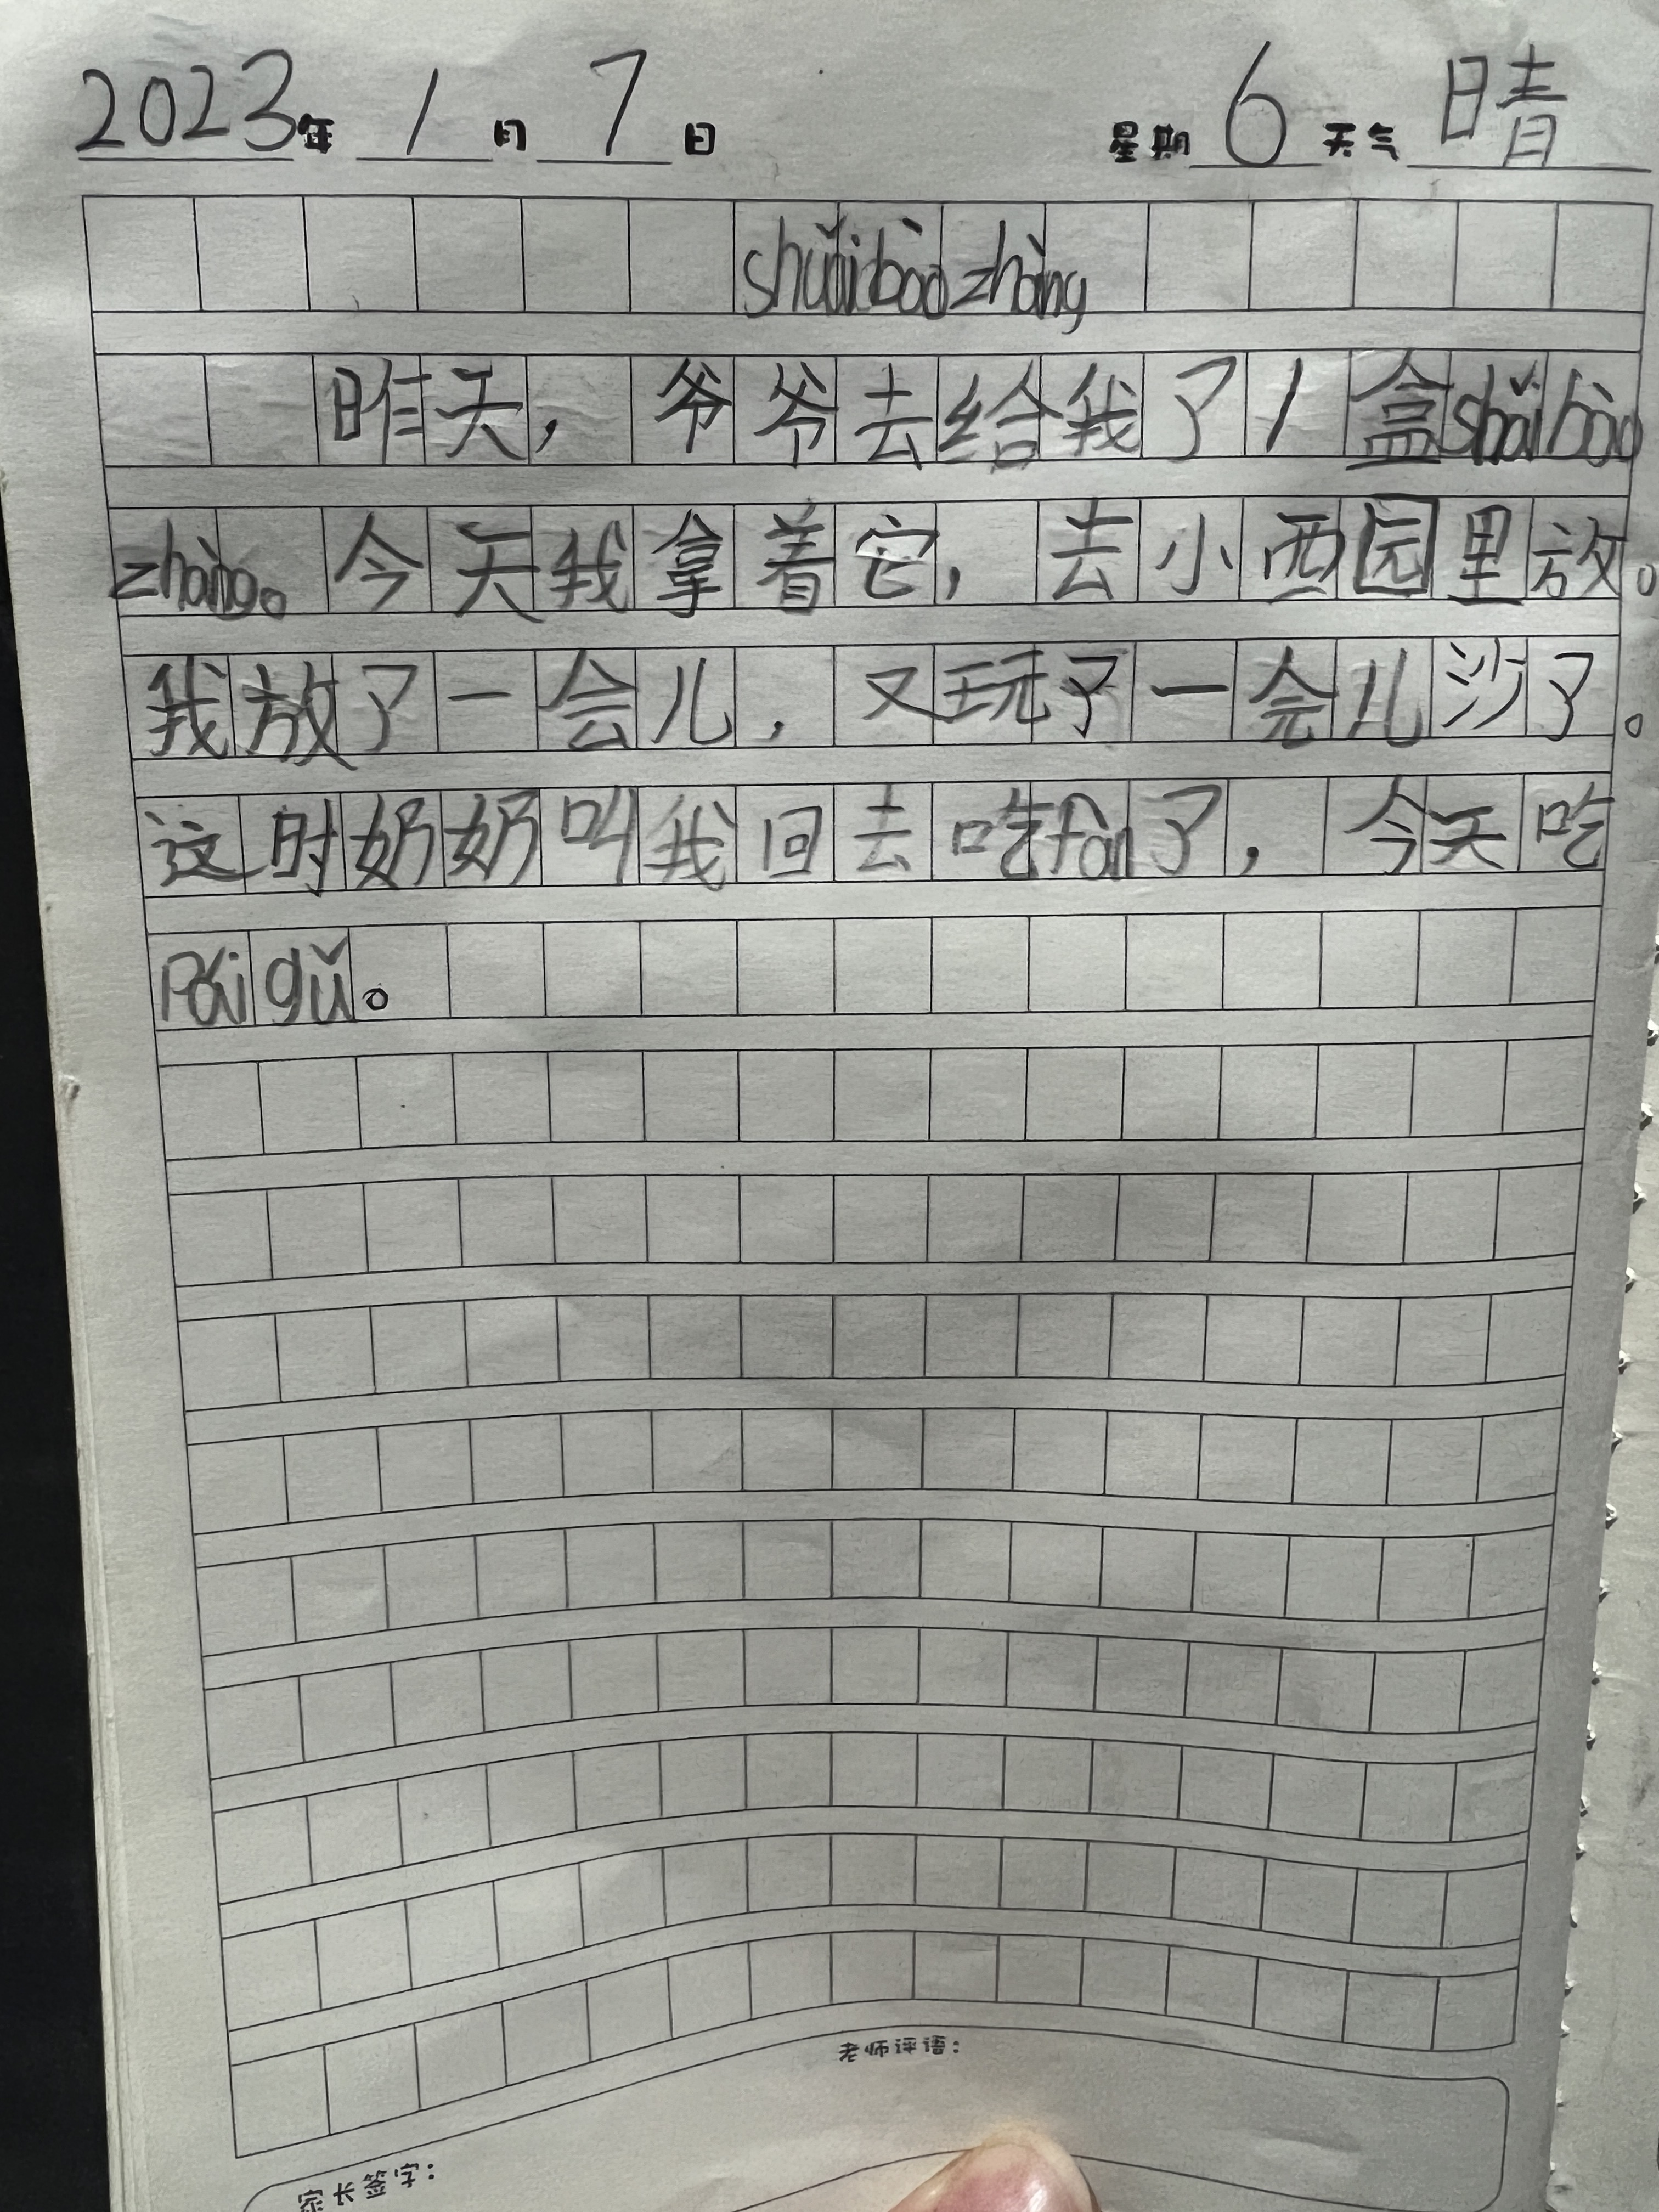 2023年 1月 7日 星期 6 天气 晴
shuǎibàozhàng
昨天，爷爷去给我了1盒shuǎibào
zhàng。今天我拿着它，去小西园里放。
我放了一会儿，又玩了一会儿沙了。
这时奶奶叫我回去吃fàn了，今天吃
Páigǔ。
老师评语：
家长签字：